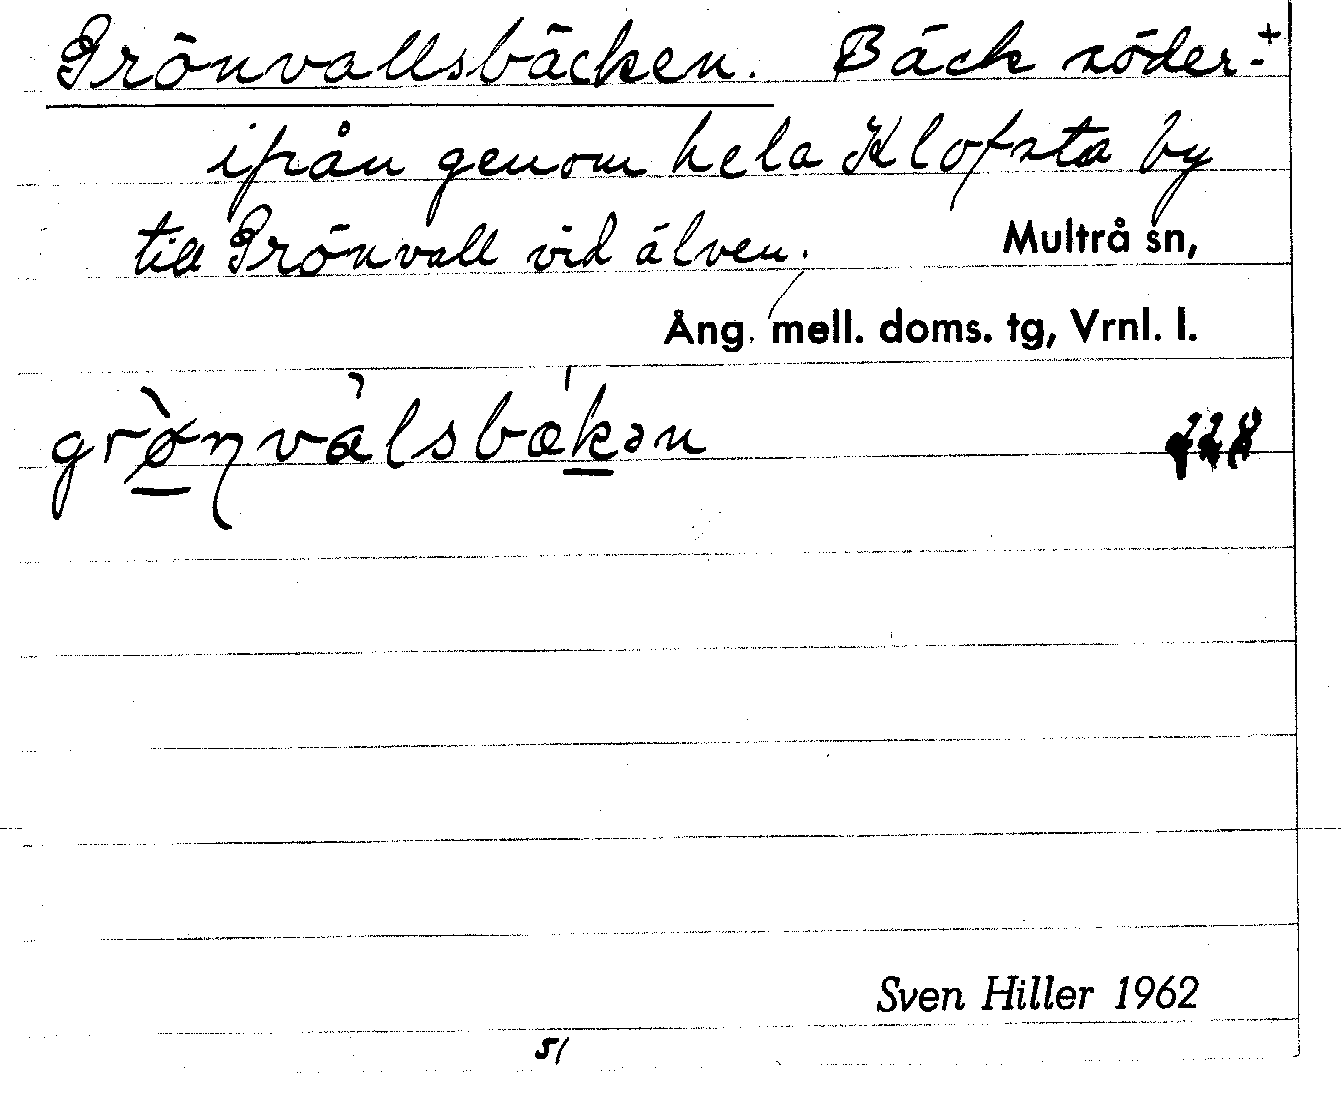 Grönvallsbäcken. Bäck söder- +
ifrån genom hela Klofsta by
till Grönvall vid älven.
Multrå sn,
Ång. mell. doms. tg, Vrnl. l.
grø̀nvàlsbækən
Sven Hiller 1962
51